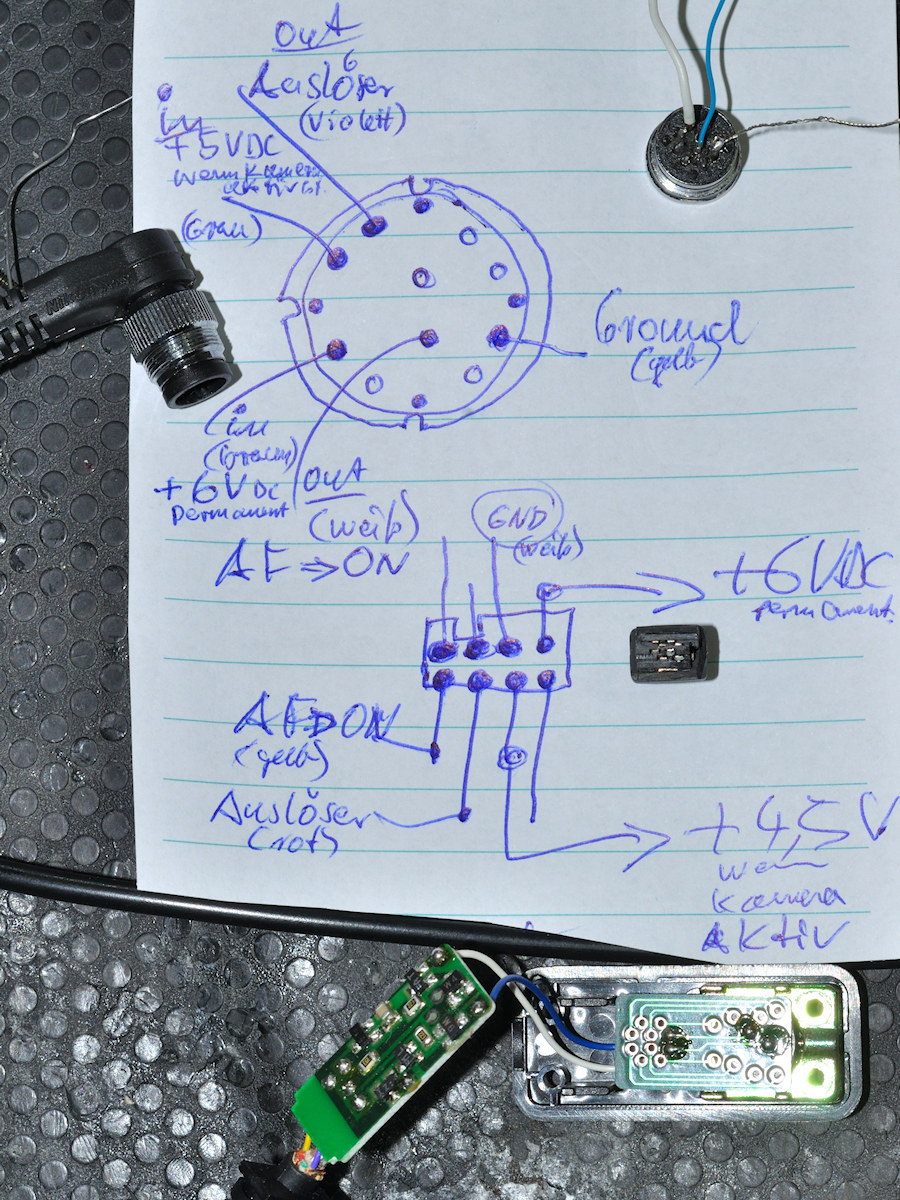 OUT
Auslöser
(Violett)
in
+5VDC
wenn Kamera
aktiv ist.
(Grau)
Ground
(gelb)
in
(braun)
+6VDC
Permanent
OUT
(weiß)
AF ⇒ ON
GND
(weiß)
+6VDC
permanent.
AF ⇒ ON
(gelb)
Auslöser
(rot)
+4,5V
wenn
Kamera
AKtiV